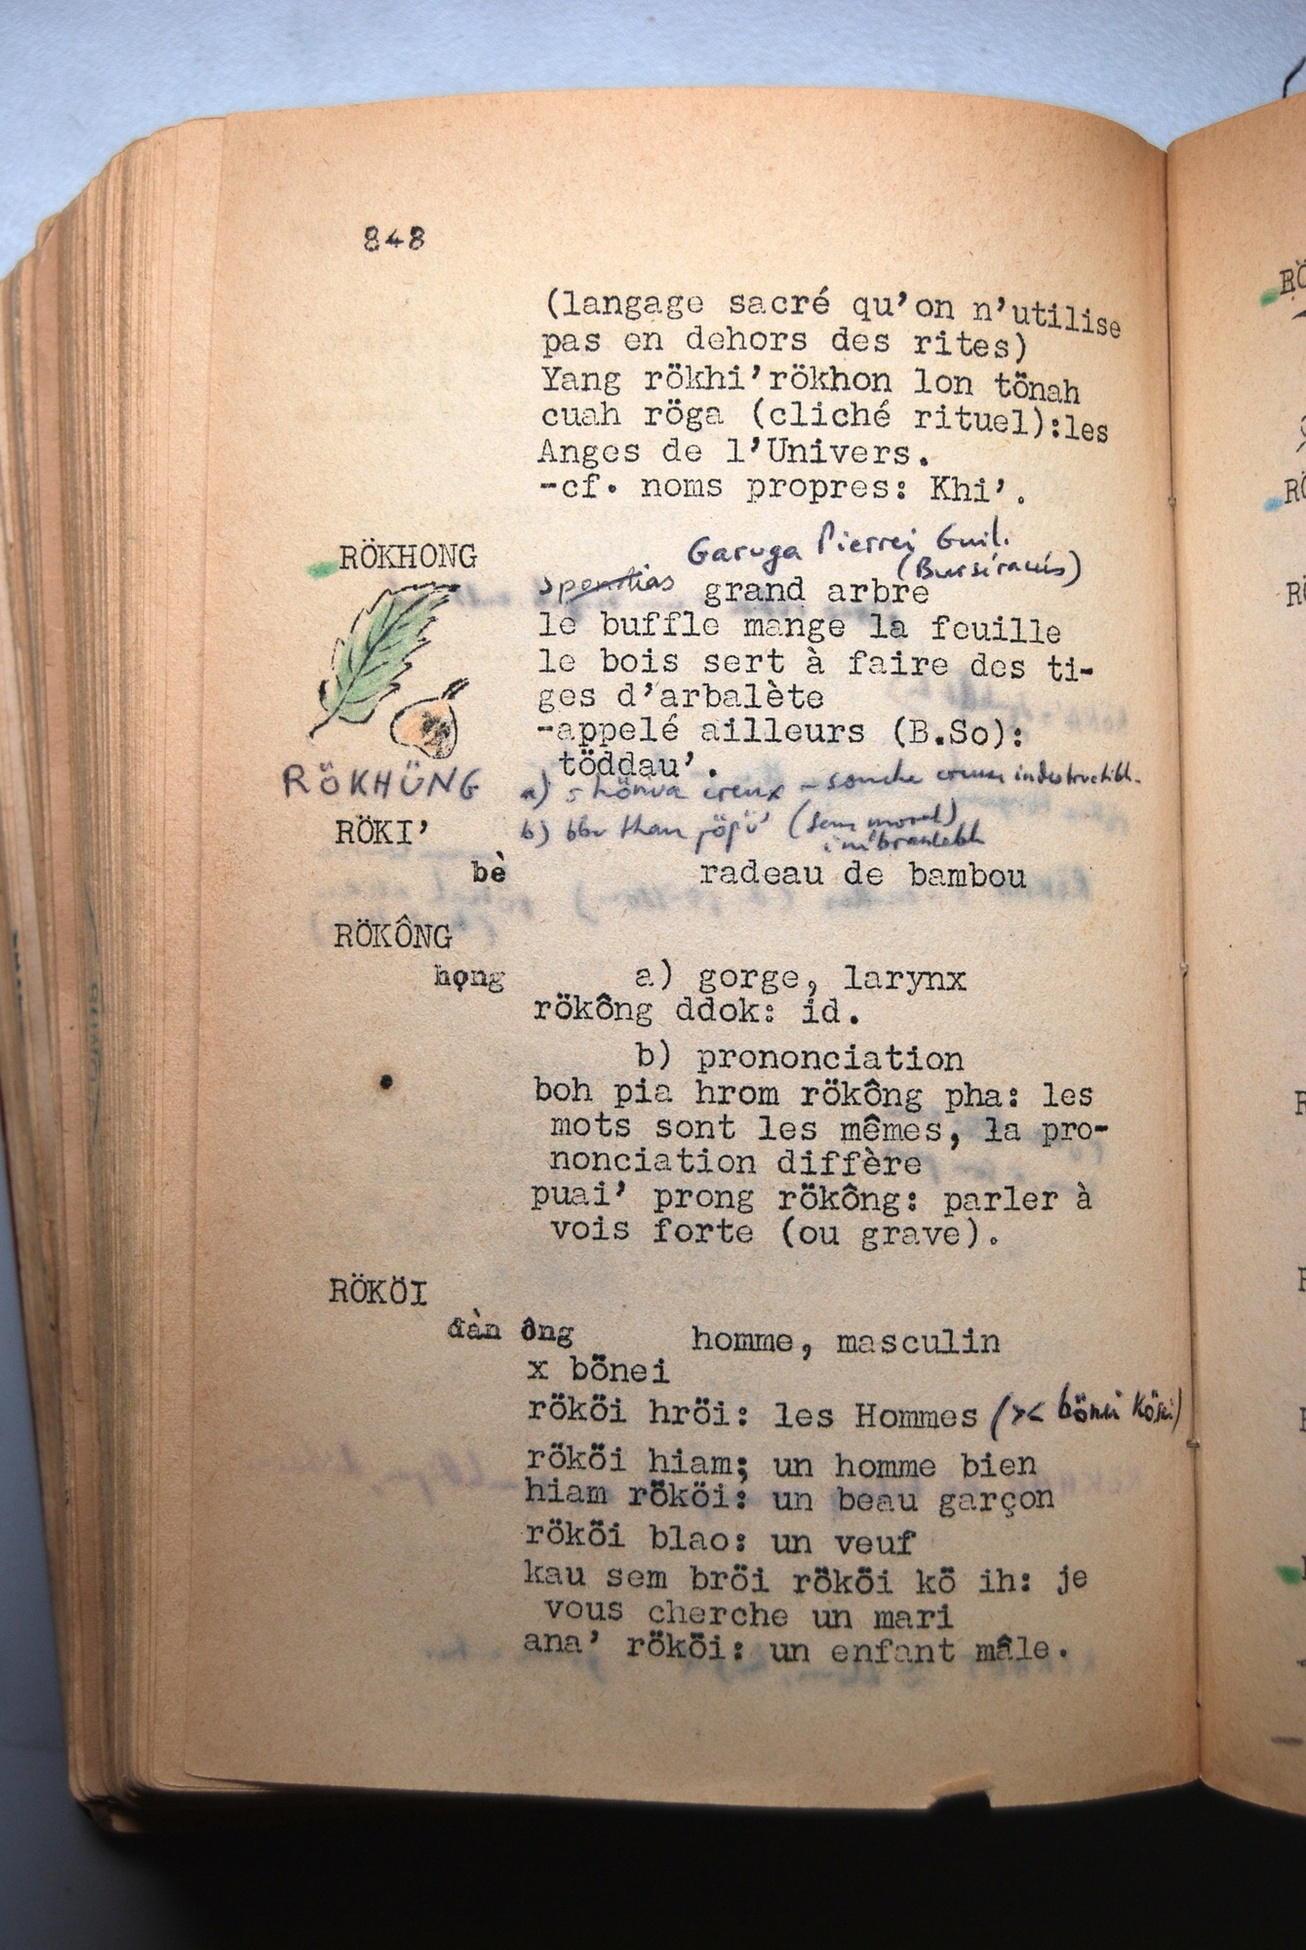 848
(langage sacré qu'on n'utilise
pas en dehors des rites)
Yang rökhi'rökhon lon tönah
cuah röga (cliché rituel):les
Anges de l'Univers.
-cf. noms propres: Khi'.
RÖKHONG
Garuga Pierrei Guil.
grand arbre
le buffle mange la feuille
le bois sert à faire des ti-
ges d'arbalète
-appelé ailleurs (B.So):
töddau'.
RÖKHÜNG
a) creux - souche
RÖKI'
b) than (sens moral)
bè radeau de bambou
RÖKÔNG
họng a) gorge, larynx
rökông ddok: id.
b) prononciation
boh pia hrom rökông pha: les
mots sont les mêmes, la pro-
nonciation diffère
puai' prong rökông: parler à
vois forte (ou grave).
RÖKÖI
đàn ông homme, masculin
x bönei
rököi hröi: les Hommes (>< bönei
rököi hiam; un homme bien
hiam rököi: un beau garçon
rököi blao: un veuf
kau sem bröi rököi kö ih: je
vous cherche un mari
ana' rököi: un enfant mâle.